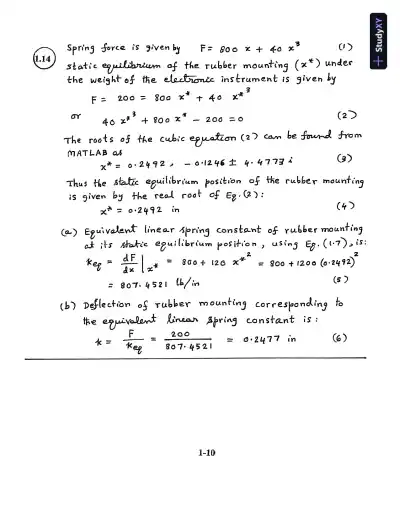 + StudyXY
1.14 Spring force is given by F = 800 x + 40 x³ (1)
static equilibrium of the rubber mounting (x*) under
the weight of the electronic instrument is given by
F = 200 = 800 x* + 40 x*³
or 40 x*³ + 800 x* - 200 = 0 (2)
The roots of the cubic equation (2) can be found from
MATLAB as
x* = 0.2492, - 0.1246 ± 4.4773 i (3)
Thus the static equilibrium position of the rubber mounting
is given by the real root of Eq. (2):
x* = 0.2492 in (4)
(a) Equivalent linear spring constant of rubber mounting
at its static equilibrium position, using Eq. (1.7), is:
keq = dF/dx |x* = 800 + 120 x*² = 800 + 1200 (0.2492)²
= 807.4521 lb/in (5)
(b) Deflection of rubber mounting corresponding to
the equivalent linear spring constant is:
x = F/keq = 200/807.4521 = 0.2477 in (6)
1-10